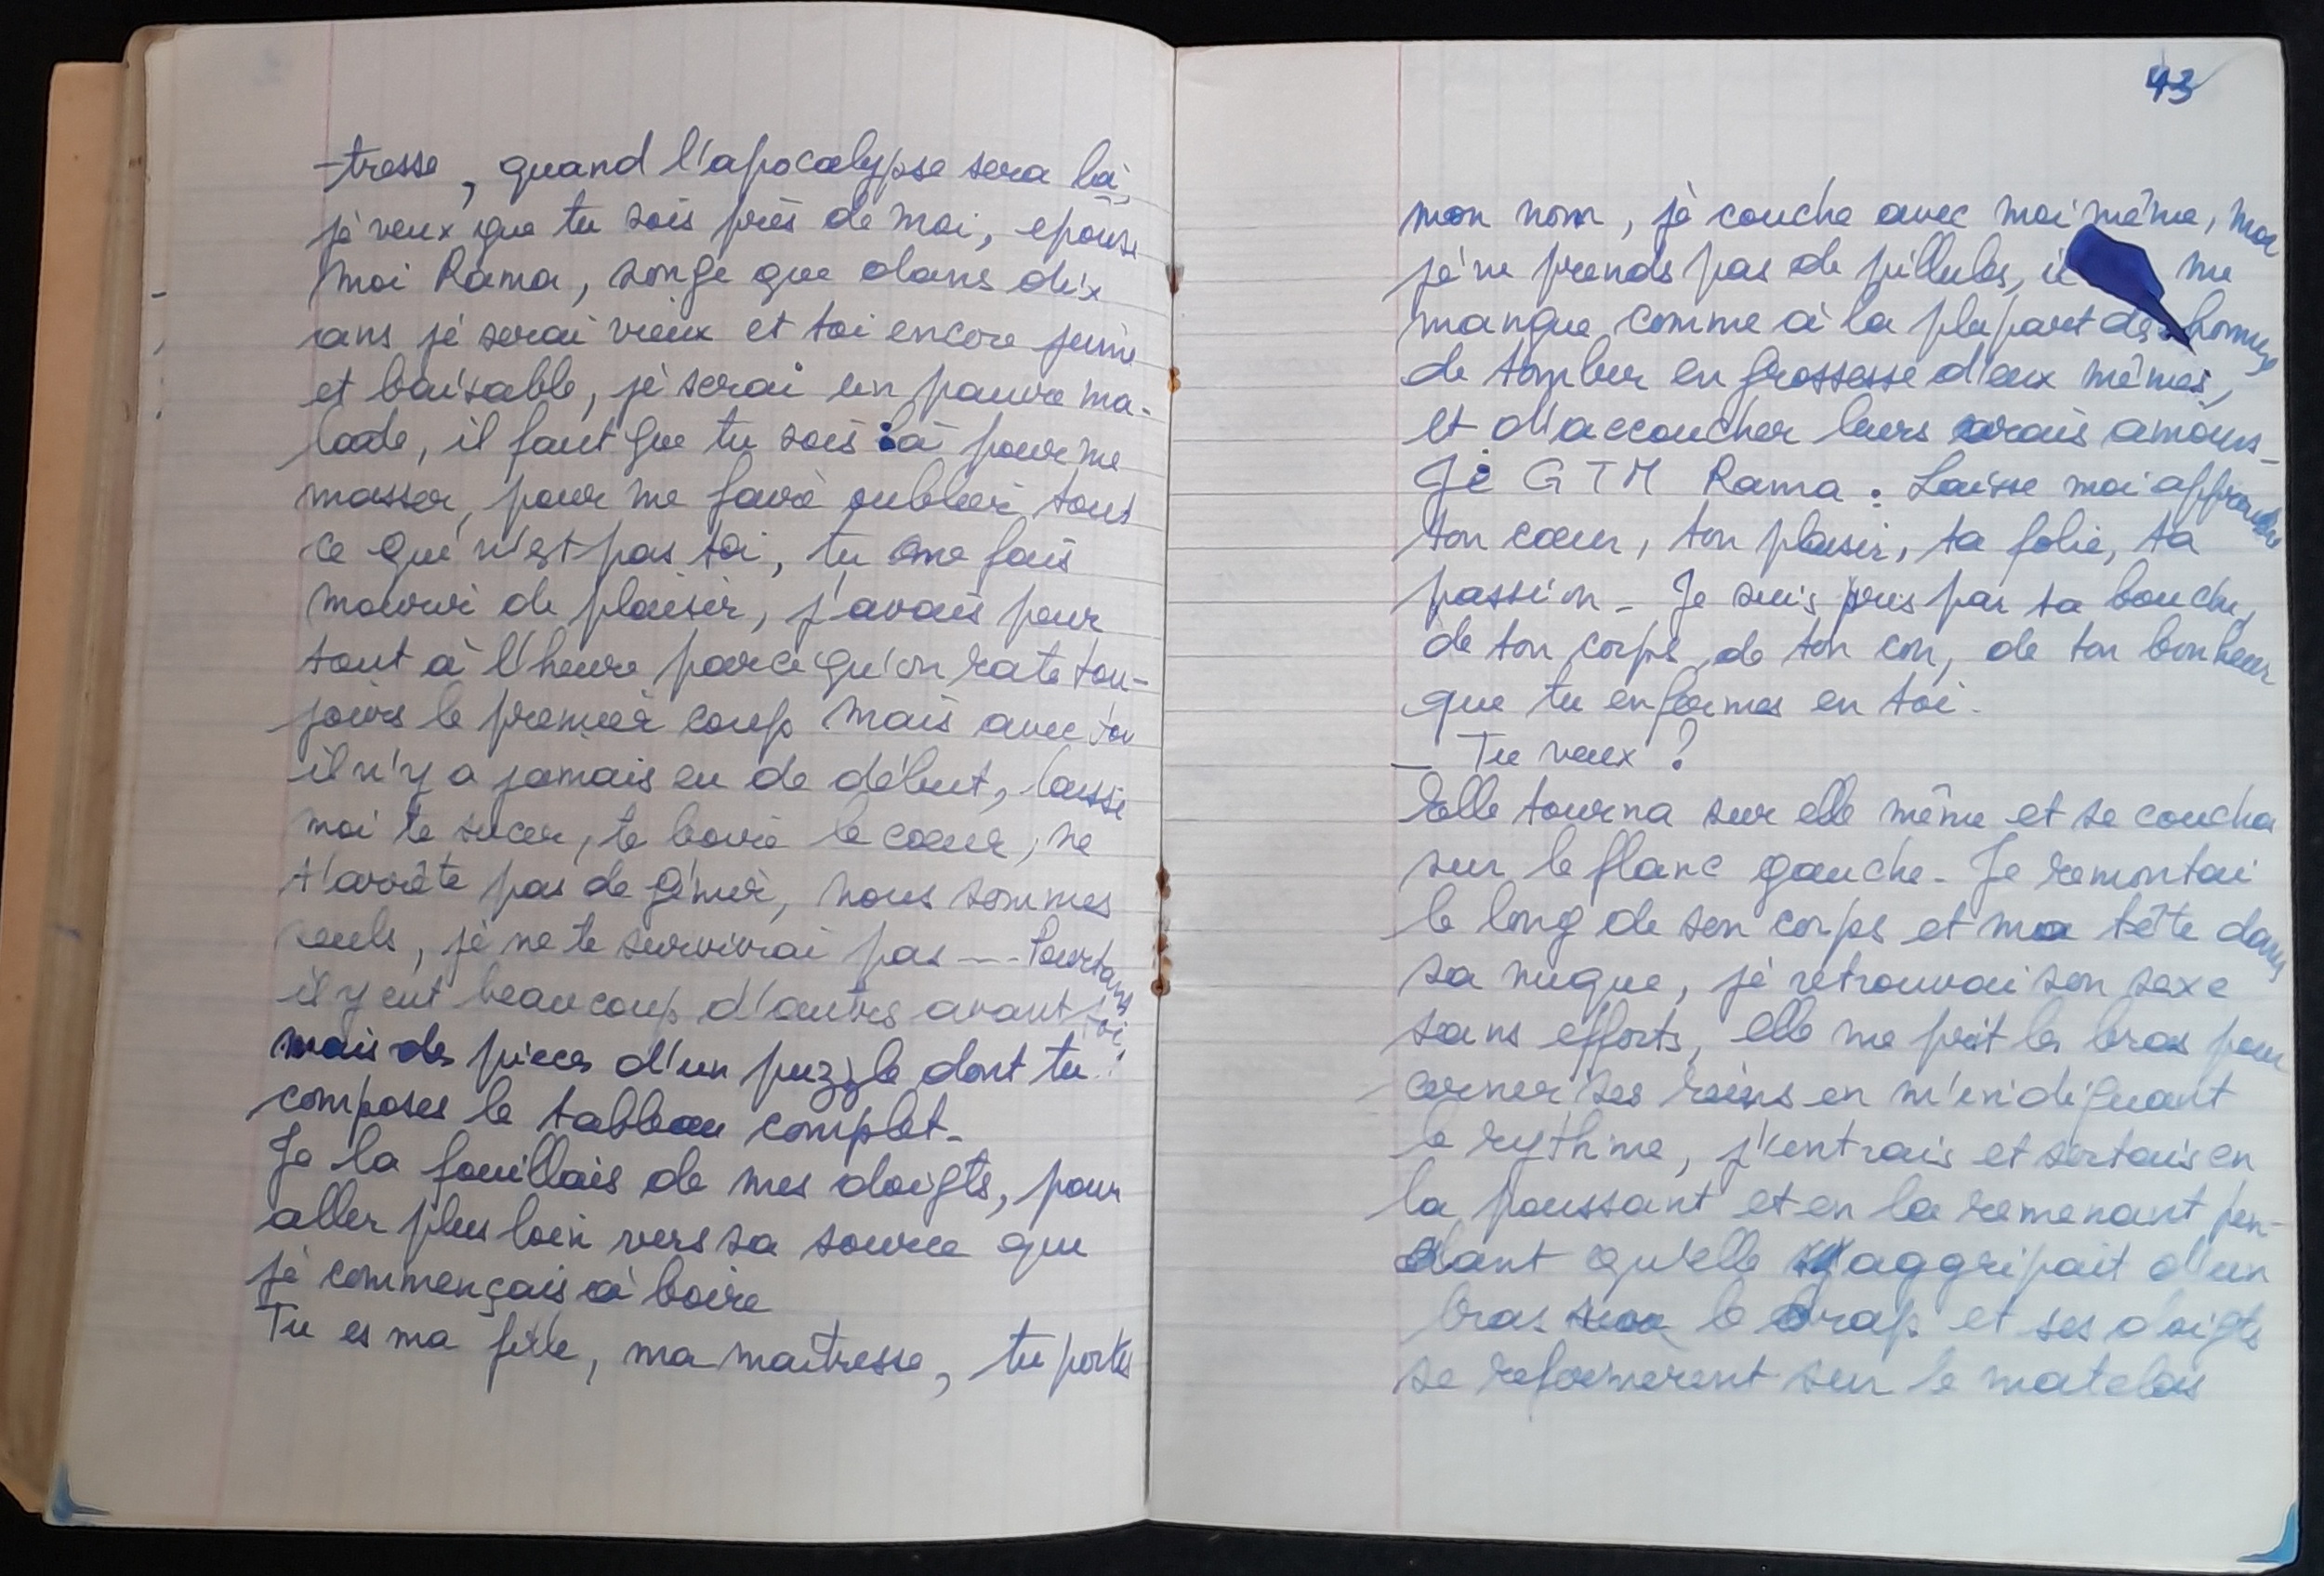 -tresse, quand l'apocalypse sera là,
je veux que tu sois près de moi, epouse
moi Rama, songe que dans dix
ans je serai vieux et toi encore jeune
et baisable, je serai un pauvre ma-
lade, il faut que tu sois là pour me
masser, pour me faire oublier tout
ce qui n'est pas toi, tu me fais
mourir de plaisir, j'avais peur
tout à l'heure parce qu'on rate tou-
jours le premier coup mais avec toi
il n'y a jamais eu de début, laisse
moi te sucer, te boire le cœur, ne
t'arrête pas de gémir, nous sommes
seuls, je ne te survivrai pas --- Pourtant
il y eut beaucoup d'autres avant toi
mais des pièces d'un puzzle dont tu
composes le tableau complet-
Je la fouillais de mes doigts, pour
aller plus loin vers sa source que
je commençais à boire
Tu es ma fille, ma maitresse, tu portes
43
mon nom, je couche avec moi même, moi
je ne prends pas de pillules, il me
manque comme à la plupart des hommes
de tomber en grossesse d'eux mêmes,
et d'accoucher leurs vrais amours-
Je GTM Rama. Laisse moi apprendre
ton cœur, ton plaisir, ta folie, ta
passion_ Je suis pris par ta bouche,
de ton corps, de ton con, de ton bonheur
que tu enfermes en toi.
_ Tu veux ?
Elle tourna sur elle même et se coucha
sur le flanc gauche- Je remontai
le long de son corps et ma tête dans
sa nuque, je retrouvai son sexe
sans efforts, elle me prit les bras pour
cerner ses reins en m'indiquant
le rythme, j'entrais et sortais en
la poussant et en la ramenant pen-
dant qu'elle aggripait d'un
bras le drap et ses doigts
se refermerent sur le matelas